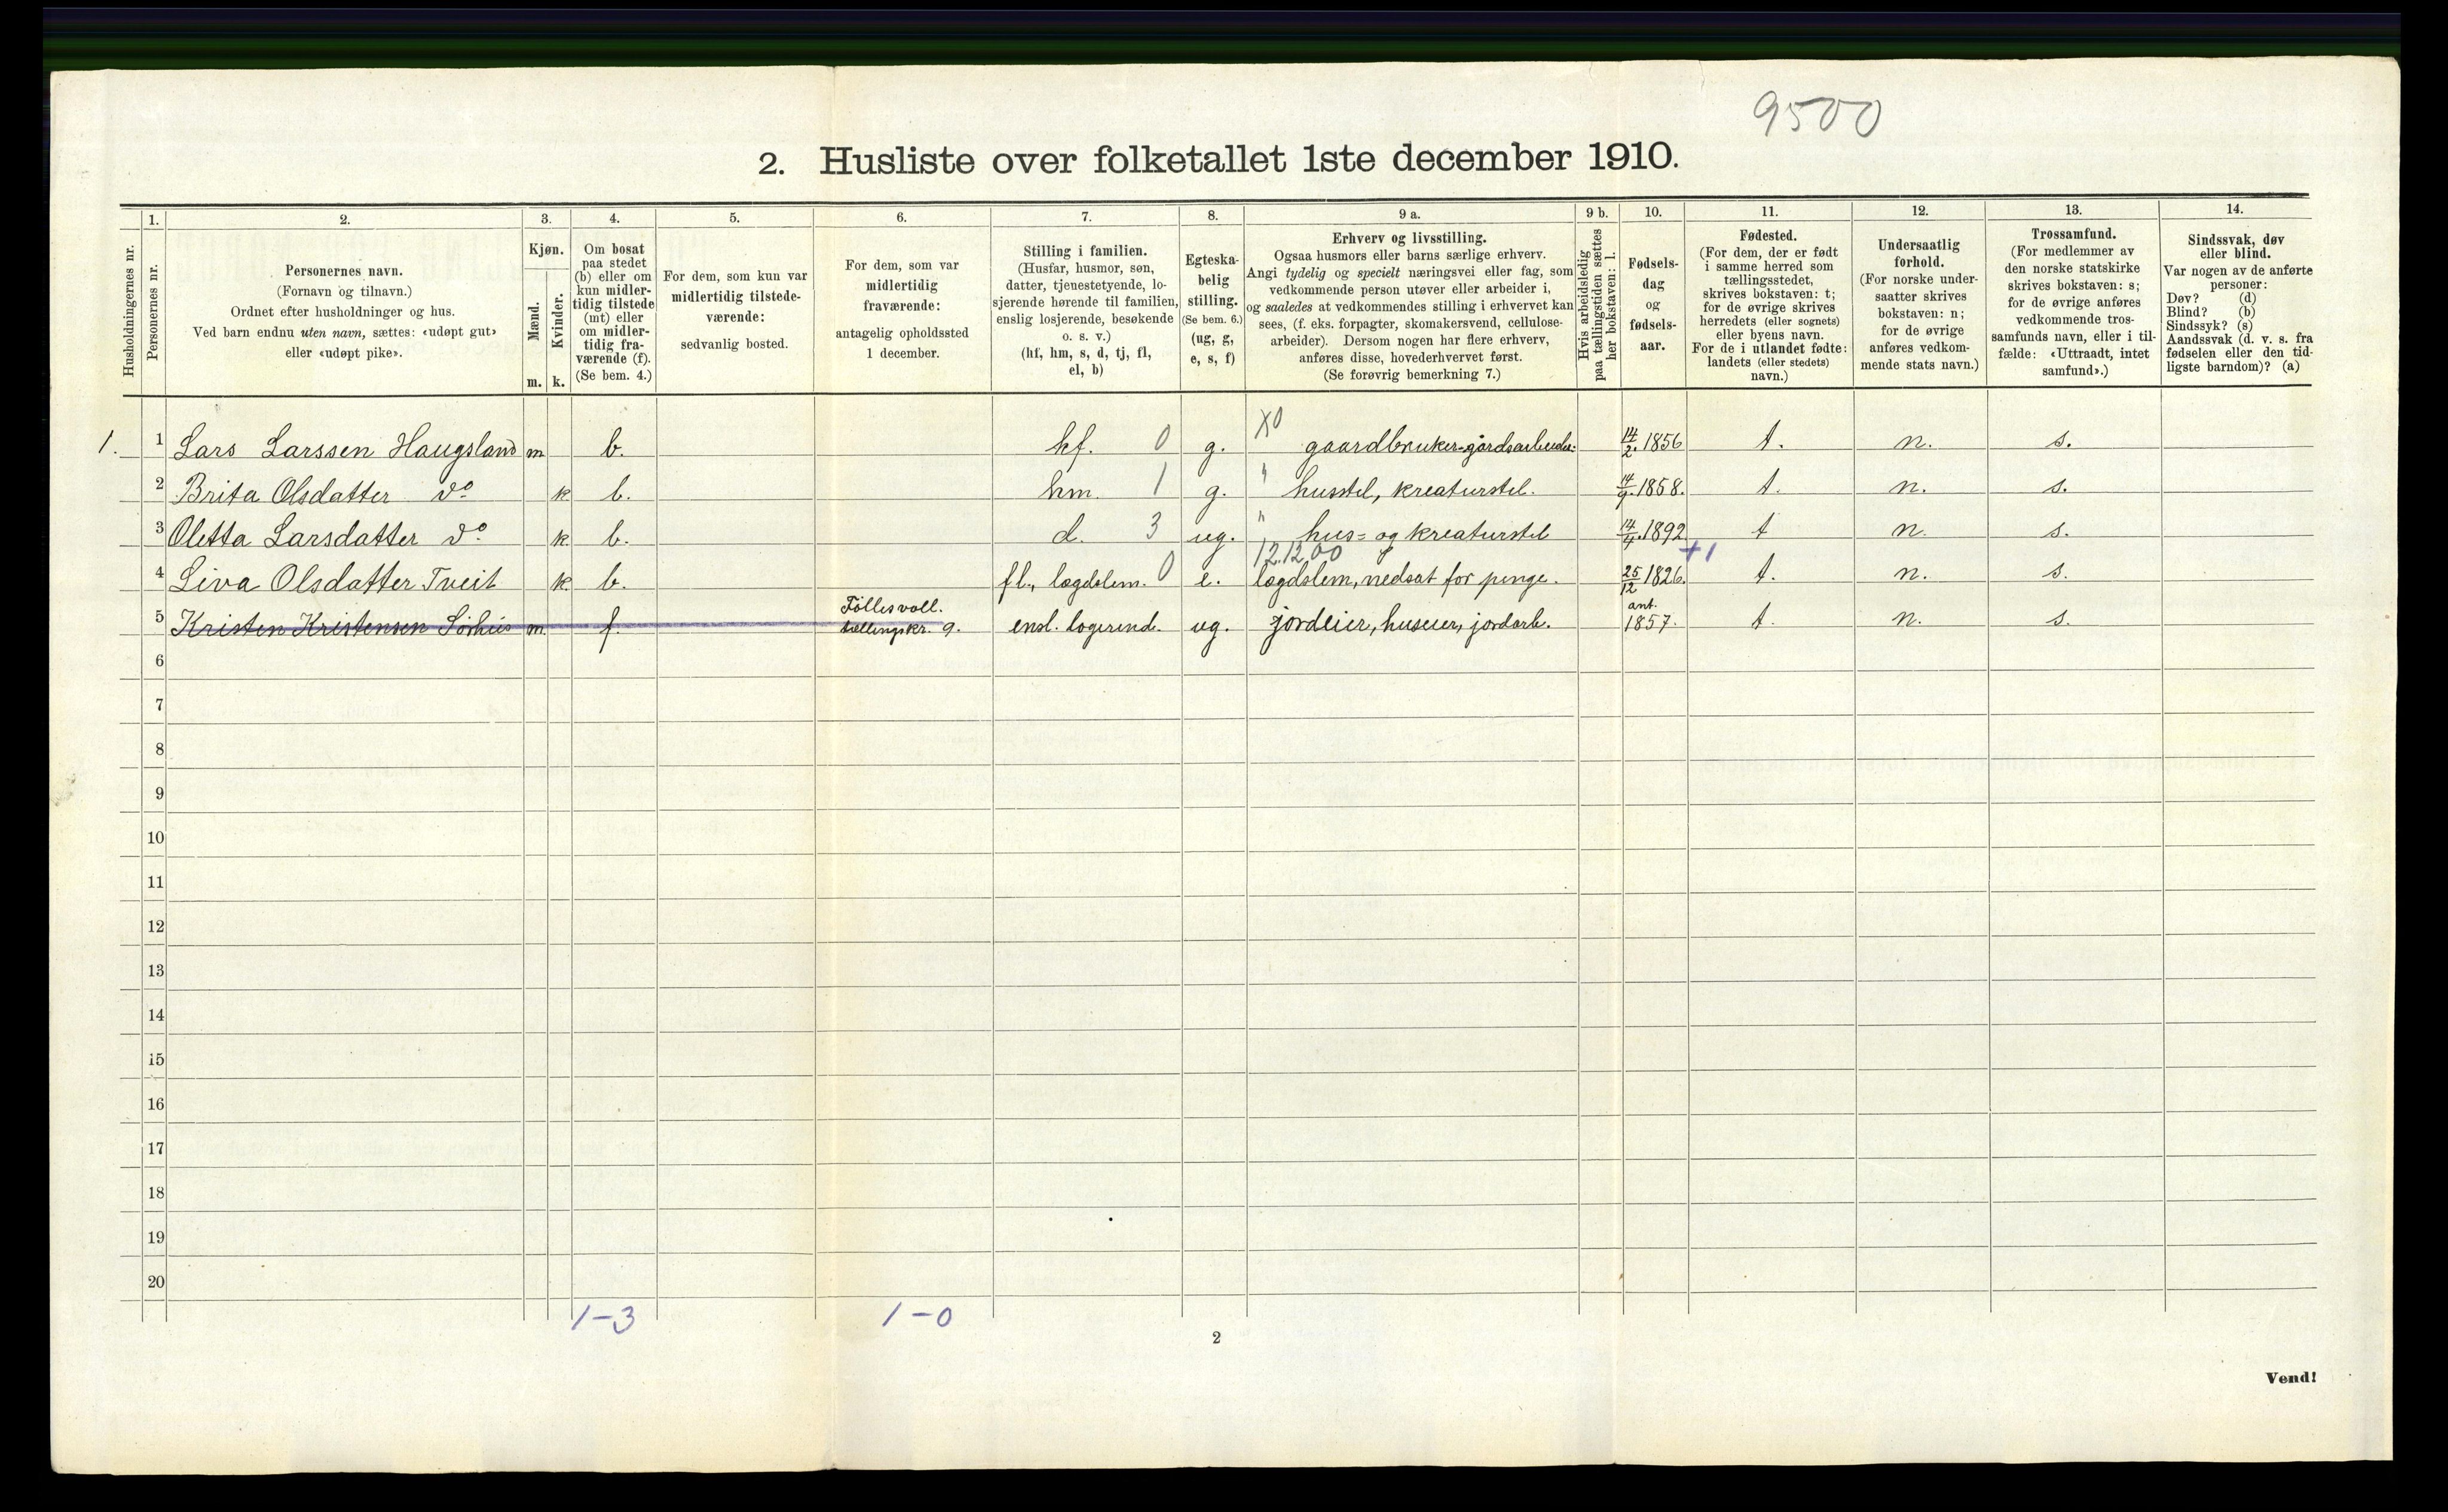 9500
2. Husliste over folketallet 1ste december 1910.
Husholdningernes nr.
1.
Personernes nr.
2.
Personernes navn.
(Fornavn og tilnavn.)
Ordnet efter husholdninger og hus.
Ved barn endnu uten navn, sættes: «udøpt gut»
eller «udøpt pike».
3.
Kjøn.
Mænd.
Kvinder.
m. k.
4.
Om bosat
paa stedet
(b) eller om
kun midler-
tidig tilstede
(mt) eller
om midler-
tidig fra-
værende (f).
(Se bem. 4.)
5.
For dem, som kun var
midlertidig tilstede-
værende:
sedvanlig bosted.
6.
For dem, som var
midlertidig
fraværende:
antagelig opholdssted
1 december.
7.
Stilling i familien.
(Husfar, husmor, søn,
datter, tjenestetyende, lo-
sjerende hørende til familien,
enslig losjerende, besøkende
o. s. v.)
(hf, hm, s, d, tj, fl,
el, b)
8.
Egteska-
belig
stilling.
(Se bem. 6.)
(ug, g,
e, s, f)
9 a.
Erhverv og livsstilling.
Ogsaa husmors eller barns særlige erhverv.
Angi tydelig og specielt næringsvei eller fag, som
vedkommende person utøver eller arbeider i,
og saaledes at vedkommendes stilling i erhvervet kan
sees, (f. eks. forpagter, skomakersvend, cellulose-
arbeider). Dersom nogen har flere erhverv,
anføres disse, hovederhvervet først.
(Se forøvrig bemerkning 7.)
9 b.
Hvis arbeidsledig
paa tællingstiden sættes
her bokstaven: l.
10.
Fødsels-
dag
og
fødsels-
aar.
11.
Fødested.
(For dem, der er født
i samme herred som
tællingsstedet,
skrives bokstaven: t;
for de øvrige skrives
herredets (eller sognets)
eller byens navn.
For de i utlandet fødte:
landets (eller stedets)
navn.)
12.
Undersaatlig
forhold.
(For norske under-
saatter skrives
bokstaven: n;
for de øvrige
anføres vedkom-
mende stats navn.)
13.
Trossamfund.
(For medlemmer av
den norske statskirke
skrives bokstaven: s;
for de øvrige anføres
vedkommende tros-
samfunds navn, eller i til-
fælde: «Uttraadt, intet
samfund».)
14.
Sindssvak, døv
eller blind.
Var nogen av de anførte
personer:
Døv? (d)
Blind? (b)
Sindssyk? (s)
Aandssvak (d. v. s. fra
fødselen eller den tid-
ligste barndom)? (a)
X0
1. 1 Lars Larssen Haugsland m b. hf. 0 g. gaardbruker-gårdsarbeider 14/2 1856 t. n. s.
2 Brita Olsdatter do k b. hm. 1 g. " husstel, kreaturstel. 14/9. 1858. t. n. s.
3 Oletta Larsdatter do k. b. d. 3 ug. " hus- og kreaturstel 14/4. 1892 t n. s.
12.12,00 +1
4 Siva Olsdatter Tveit k. b. fl., lægdslem. 0 e. lægdslem, nedsat for penge. 25/12 1826. t. n. s.
Föllesvoll. ant.
5 Kristen Kristensen Sörhus m. f. tællingskr. 9. ensl. logerend. ug. jordeier, huseier, jordarb. 1857. t. n. s.
6
7
8
9
10
11
12
13
14
15
16
17
18
19
20
1-3 1-0
2
Vend!